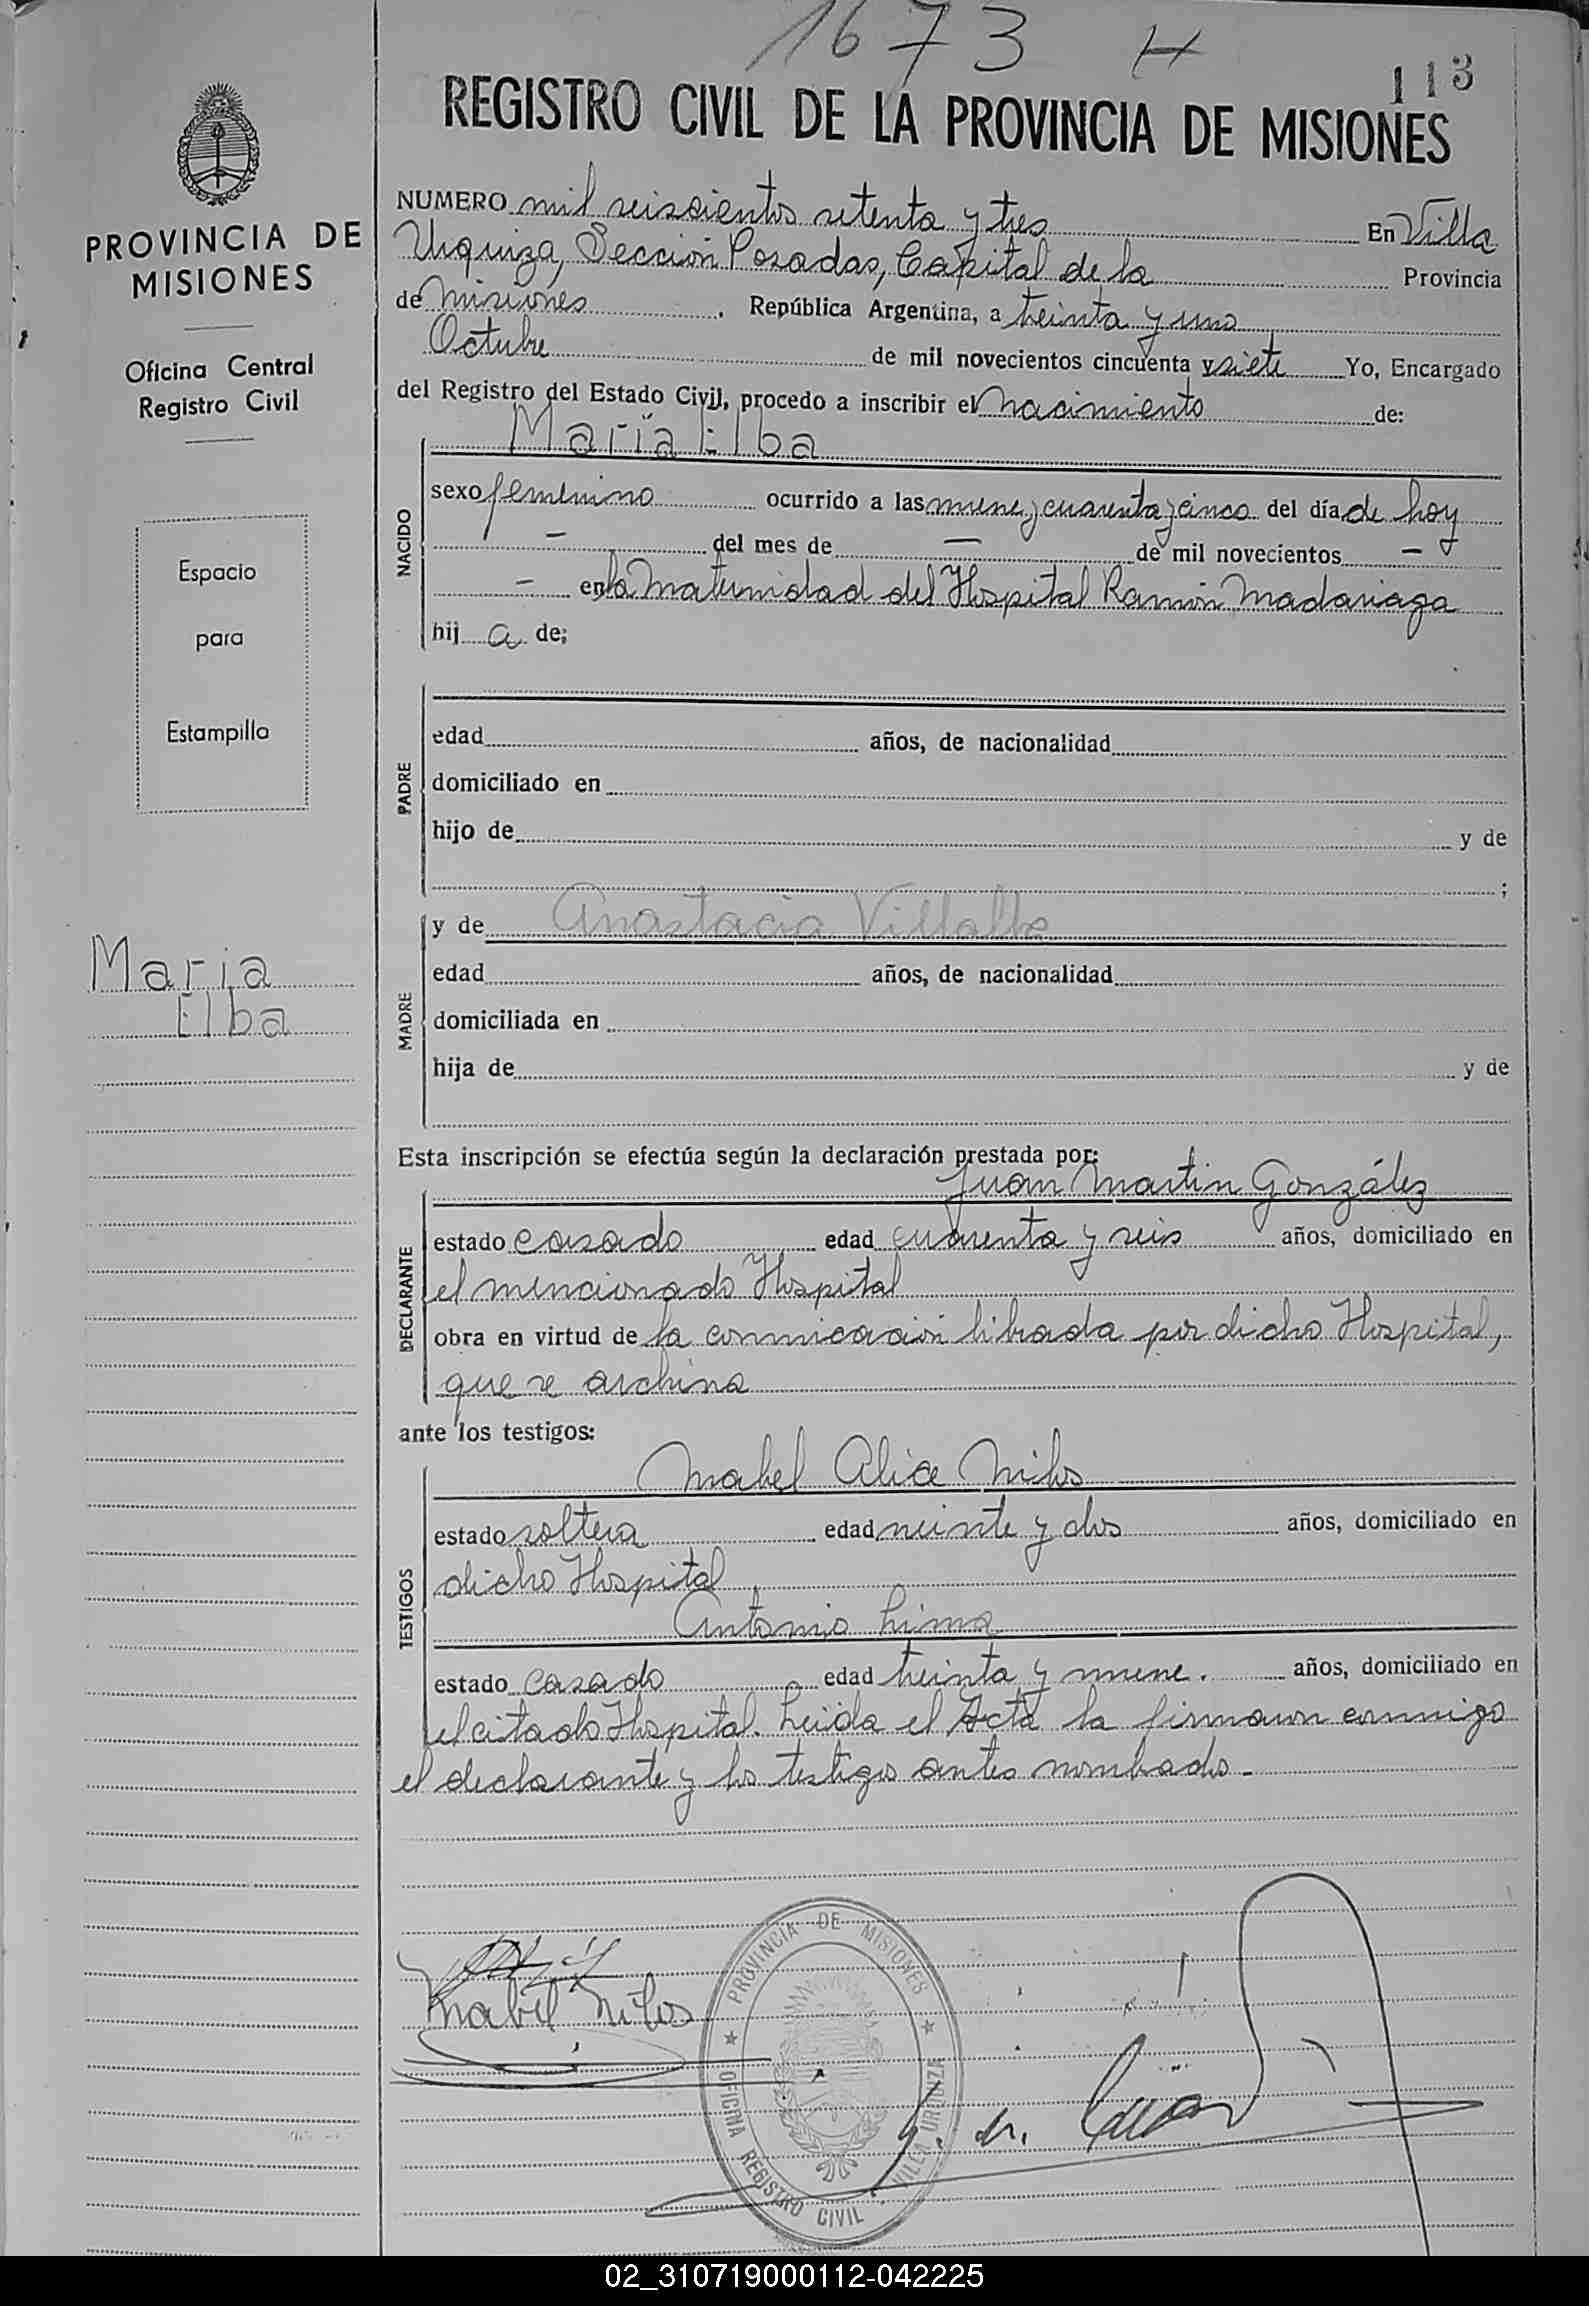 1673 H
113
REGISTRO CIVIL DE LA PROVINCIA DE MISIONES
PROVINCIA DE
MISIONES
Oficina Central
Registro Civil
Espacio
para
Estampilla
Maria
Elba
NUMERO mil seiscientos setenta y tres En Villa
Urquiza, Sección Posadas, Capital de la Provincia
de Misiones República Argentina, a treinta y uno
Octubre de mil novecientos cincuenta y siete Yo, Encargado
del Registro del Estado Civil, procedo a inscribir el nacimiento de:
María Elba
NACIDO
sexo femenino ocurrido a las nueve y cuarenta y cinco del día de hoy
— del mes de — de mil novecientos —
— en la Maternidad del Hospital Ramón Madariaga
hij a de;
PADRE
edad años, de nacionalidad
domiciliado en
hijo de y de
;
MADRE
y de Anastacia Villalba
edad años, de nacionalidad
domiciliada en
hija de y de
Esta inscripción se efectúa según la declaración prestada por:
DECLARANTE
Juan Martin González
estado casado edad cuarenta y seis años, domiciliado en
el mencionado Hospital
obra en virtud de la comnicación librada por dicho Hospital,
que se archiva
ante los testigos:
TESTIGOS
Mabel Alice Milos
estado soltera edad veinte y dos años, domiciliado en
dicho Hospital
Antonio Lima
estado casado edad treinta y nueve. años, domiciliado en
el citado Hospital. Leída el Acta la firmaron conmigo
el declarante y los testigos antes nombrados.-
Mabel Milos
PROVINCIA DE MISIONES
OFICINA REGISTRO CIVIL VILLA URQUIZA
02_310719000112-042225